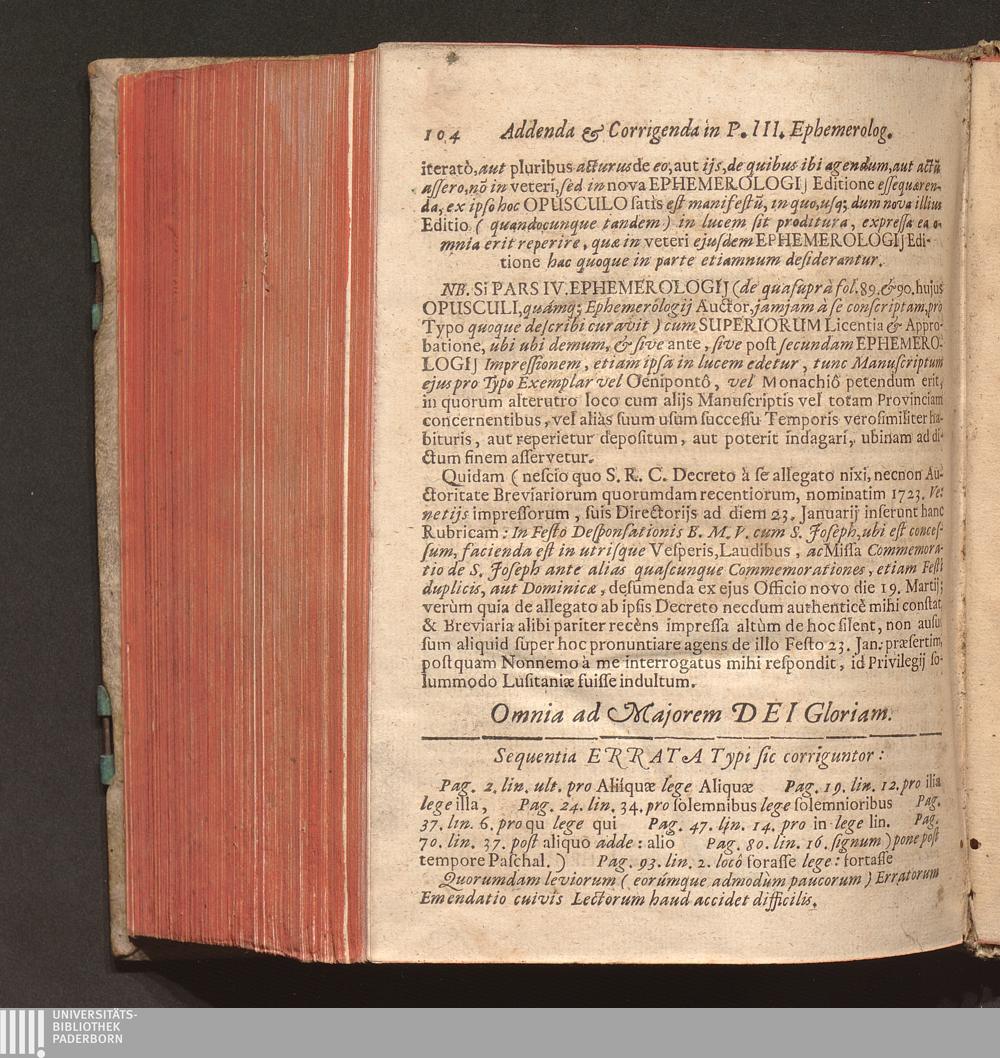 104 Addenda & Corrigenda in P. III. Ephemerolog.
iteratò, aut pluribus acturus de eo, aut ijs, de quibus ibi agendum, aut actũ
assero, nõ in veteri, sed in nova EPHEMEROLOGIJ Editione essequaren-
da, ex ipso hoc OPUSCULO satis est manifestũ, in quo, usq; dum nova illius
Editio (quandocunque tandem) in lucem sit proditura, expressa ea o-
mnia erit reperire, quæ in veteri ejusdem EPHEMEROLOGIJ Edi-
tione hac quoque in parte etiamnum desiderantur.
NB. Si PARS IV. EPHEMEROLOGIJ (de qua suprà fol. 89. & 90. hujus
OPUSCULI, quámq; Ephemerólogij Auctor, jamjam à se conscriptam, prò
Typo quoque describi curavit) cum SUPERIORUM Licentia & Appro-
batione, ubi ubi demum, & sive ante, sive post secundam EPHEMERO-
LOGIJ Impressionem, etiam ipsa in lucem edetur, tunc Manuscriptum
ejus pro Typo Exemplar vel Oenipontô, vel Monachiô petendum erit,
in quorum alterutro loco cum alijs Manuscriptis vel totam Provinciam
concernentibus, vel aliàs suum usum successu Temporis verosimiliter ha-
bituris, aut reperietur depositum, aut poterit indagari, ubinam ad di-
ctum finem asservetur.
Quidam (nescio quo S. R. C. Decreto à se allegato nixi, necnon Au-
ctoritate Breviariorum quorumdam recentiorum, nominatim 1723. Ve-
netijs impressorum, suis Directorijs ad diem 23. Januarij inserunt hanc
Rubricam: In Festo Desponsationis B. M. V. cum S. Joseph, ubi est conces-
sum, facienda est in utrisque Vesperis, Laudibus, ac Missa Commemora-
tio de S. Joseph ante alias quascunque Commemorationes, etiam Festi
duplicis, aut Dominicæ, desumenda ex ejus Officio novo die 19. Martij;
verùm quia de allegato ab ipsis Decreto necdum authenticè mihi constat,
& Breviaria alibi pariter recèns impressa altùm de hoc silent, non ausus
sum aliquid super hoc pronuntiare agens de illo Festo 23. Jan: præsertim,
postquam Nonnemo à me interrogatus mihi respondit, id Privilegij so-
lummodo Lusitaniæ fuisse indultum.
Omnia ad Majorem DEI Gloriam.
Sequentia ERRATA Typi sic corriguntor:
Pag. 2. lin. ult. pro Aliiquæ lege Aliquæ Pag. 19. lin. 12. pro ilia
lege illa, Pag. 24. lin. 34. pro solemnibus lege solemnioribus Pag.
37. lin. 6. pro qu lege qui Pag. 47. lin. 14. pro in lege lin. Pag.
70. lin. 37. post aliquo adde: alio Pag. 80. lin. 16. signum ) pone post
tempore Paschal. ) Pag. 93. lin. 2. locô forasse lege: fortasse
Quorumdam leviorum (eorúmque admodùm paucorum) Erratorum
Emendatio cuivis Lectorum haud accidet difficilis.
UNIVERSITÄTS-
BIBLIOTHEK
PADERBORN